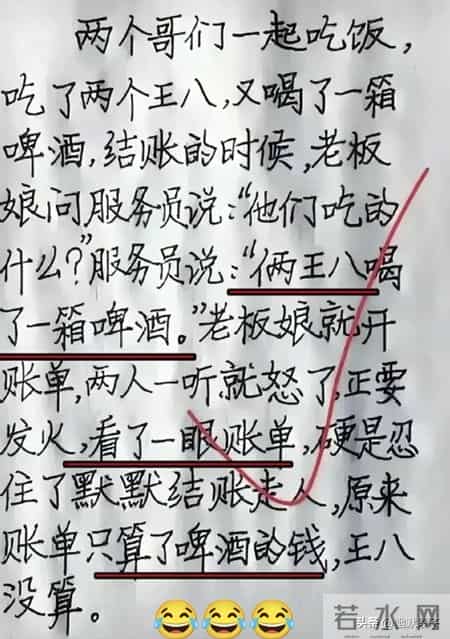 两个哥们一起吃饭，
吃了两个王八，又喝了一箱
啤酒，结账的时候，老板
娘问服务员说：“他们吃的
什么？”服务员说：“俩王八喝
了一箱啤酒。”老板娘就开
账单，两人一听就怒了，正要
发火，看了一眼账单，硬是忍
住了默默结账走人，原来
账单只算了啤酒的钱，王八
没算。
若水网